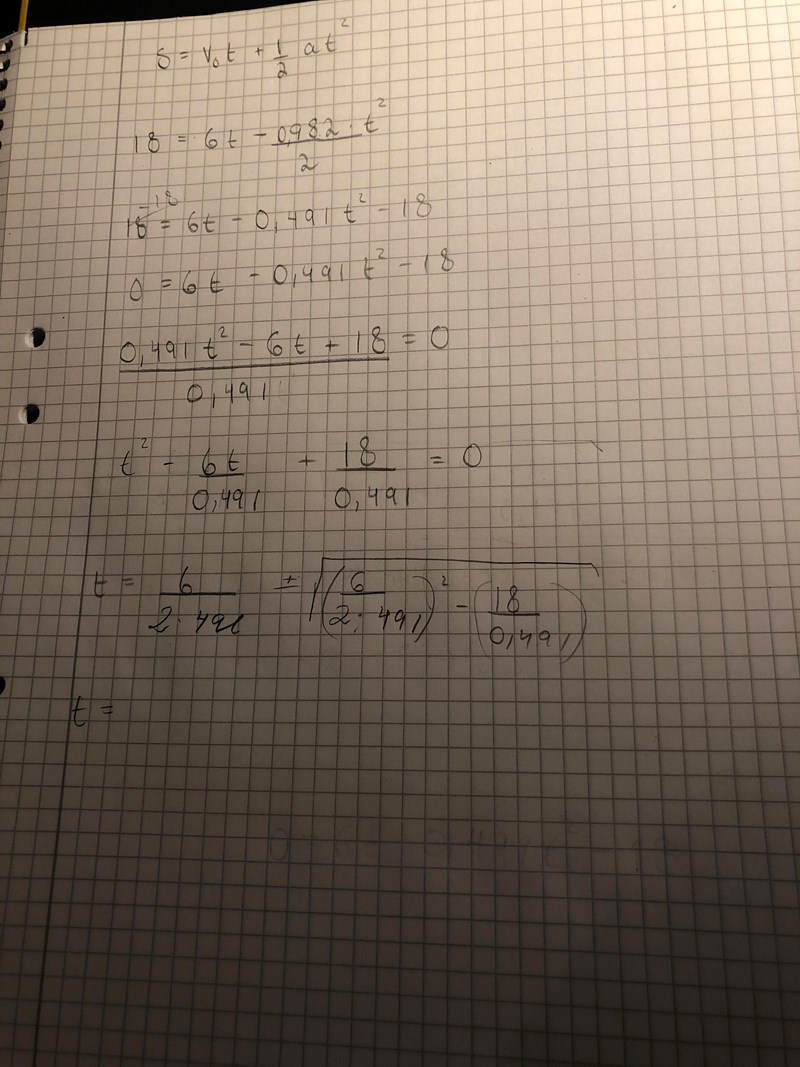 s = v₀t + 1/2 at²
18 = 6t - 0,982 · t²/2
18 -18 = 6t - 0,491t² - 18
0 = 6t - 0,491t² - 18
(0,491t² - 6t + 18)/0,491 = 0
t² - 6t/0,491 + 18/0,491 = 0
t = 6/(2·491) ± √((6/(2·491))² - (18/0,491))
t =